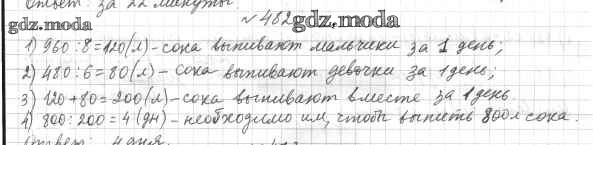 Ответ: за 22 минуты.
№ 482 gdz.moda
gdz.moda
1) 960 : 8 = 120 (л) - сока выпивают мальчики за 1 день;
2) 480 : 6 = 80 (л) - сока выпивают девочки за 1 день;
3) 120 + 80 = 200 (л) - сока выпивают вместе за 1 день.
4) 800 : 200 = 4 (дн) - необходимо им, чтобы выпить 800 л сока.
Ответ: 4 дня.